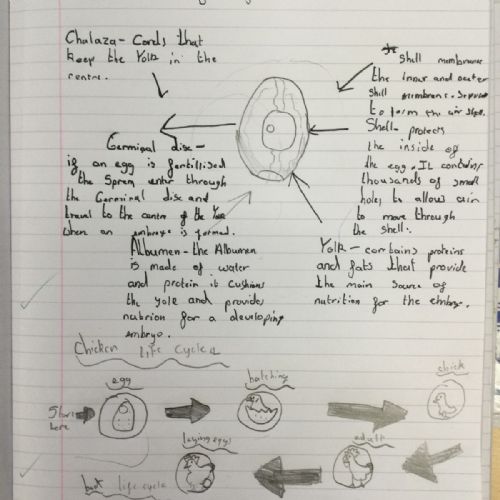 Chalaza - Cords that
keep the Yolk in the
centre.
Shell membranes
the inner and outer
shell membrane. Seperate
to form the air
Shell - protects
the inside of
the egg. It contains
thousands of small
holes to allow air
to move through
the shell.
Germinal disc -
if an egg is fertilised
the Sprem enter through
the Germinal disc and
travel to the centre of the Yolk
when an embryo is formed.
Albumen - the Albumen
is made of water
and protein it cushions
the yolk and provides
nutrion for a developing
embryo.
Yolk - contains proteins
and fats that provide
the main source of
nutrition for the embryo.
Chicken life cycle
egg
hatching
chick
Start
here
laying eggs
adult
life cycle